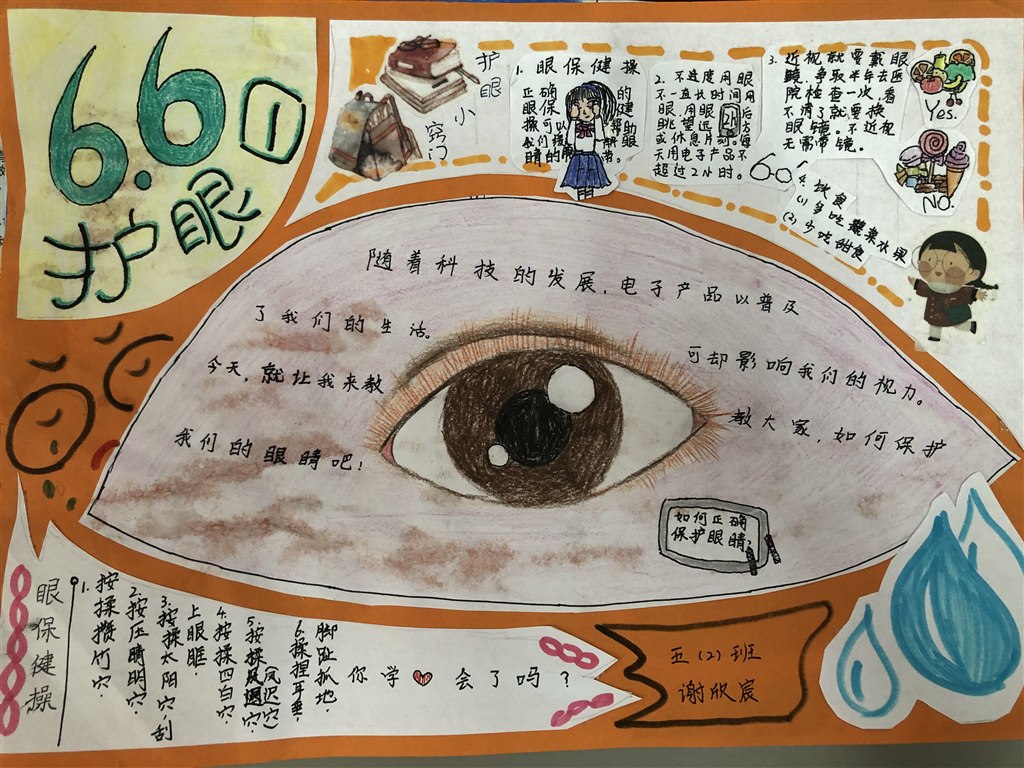 6.6
1
护眼
护眼
小
窍门
1. 眼保健操
正确的
眼保健
操可以帮助
我们缓解眼
睛的疲劳。
2. 不过度用眼
不一直长时间用
眼用眼2小后
眺望远方
或休息片刻。每
天用电子产品不
超过2小时。
3. 近视就要戴眼
镜,争取半年去医
院检查一次,看
不清了就要换
眼镜。不近视
无需带镜。
4. 饮食
(1) 多吃蔬菜水果
(2) 少吃甜食
Yes.
NO.
随着科技的发展,电子产品以普及
了我们的生活。
可却影响我们的视力。
今天,就让我来教
教大家,如何保护
我们的眼睛吧!
如何正确
保护眼睛
眼保健操
1. 按揉攒竹穴.
2. 按压睛明穴.
3. 按揉太阳穴,刮
上眼眶.
4. 按揉四白穴.
5. 按揉
(风池穴)
6. 揉捏耳垂.
脚趾抓地.
你学会了吗?
五(2)班
谢欣宸